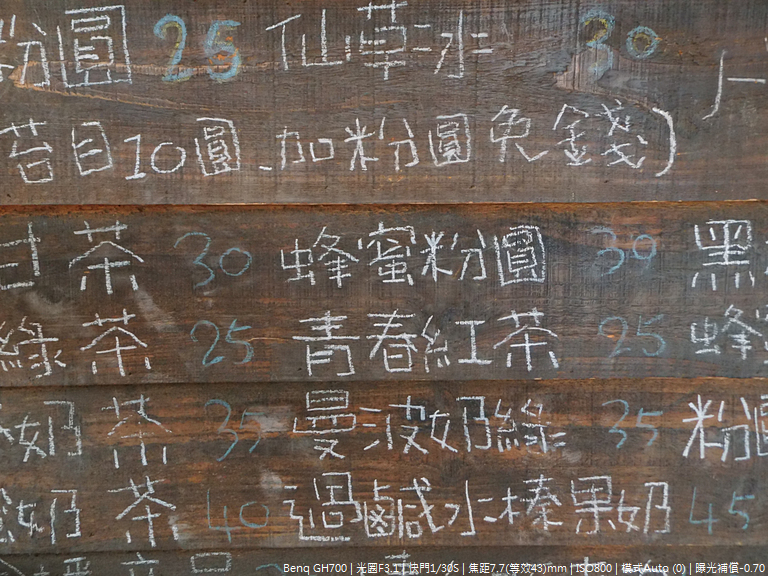 粉圓 25 仙草冰 30
苔目10圓-加粉圓免錢)
甘茶 30 蜂蜜粉圓 30 黑
綠茶 25 青春紅茶 25 蜂
奶茶 35 曼波奶綠 35 粉圓
奶茶 40 過鹹水榛果奶 45
Benq GH700 | 光圈F3.1 | 快門1/30S | 焦距7.7(等效43)mm | ISO800 | 模式Auto (0) | 曝光補償-0.70